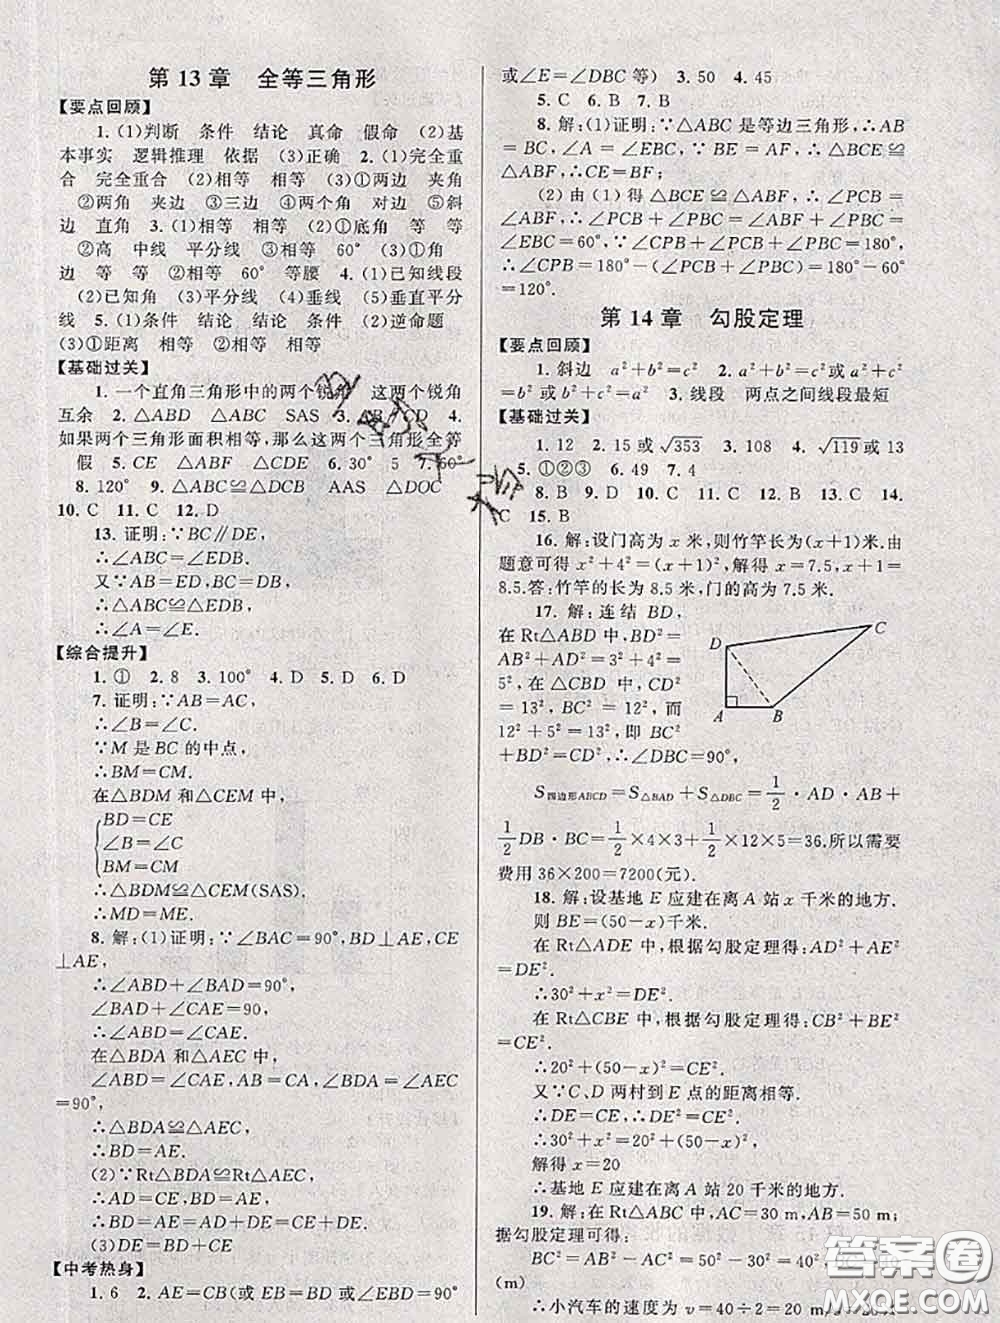 第 13 章　全等三角形
【要点回顾】
1. (1)判断　条件　结论　真命　假命　(2)基
本事实　逻辑推理　依据　(3)正确　2. (1)完全重
合　完全重合　(2)相等　相等　(3)①两边　夹角
②两角　夹边　③三边　④两个角　对边　⑤斜
边　直角　3. (1)相等　相等　(2)①底角　等　等
②高　中线　平分线　③相等　60°　(3)①角
边　等　等　②相等　60°　等腰　4. (1)已知线段
(2)已知角　(3)平分线　(4)垂线　(5)垂直平分
线　5. (1)条件　结论　结论　条件　(2)逆命题
(3)①距离　相等　②相等　相等
【基础过关】
1. 一个直角三角形中的两个锐角　这两个锐角
互余　2. △ABD　△ABC　SAS　3. AB　CD　4.
如果两个三角形面积相等,那么这两个三角形全等
假　5. CE　△ABF　△CDE　6. 30°　5　7. 60°
8. 120°　9. △ABC≌△DCB　AAS　△DOC
10. C　11. C　12. D
13. 证明:∵BC∥DE,
∴∠ABC=∠EDB.
又∵AB=ED,BC=DB,
∴△ABC≌△EDB,
∴∠A=∠E.
【综合提升】
1. ①　2. 8　3. 100°　4. D　5. D　6. D
7. 证明:∵AB=AC,
∴∠B=∠C.
∵M 是 BC 的中点,
∴BM=CM.
在△BDM 和△CEM 中,
BD=CE
∠B=∠C
BM=CM
∴△BDM≌△CEM(SAS).
∴MD=ME.
8. 解:(1)证明:∵∠BAC=90°,BD⊥AE,CE
⊥AE,
∴∠ABD+∠BAD=90°,
∠BAD+∠CAE=90,
∴∠ABD=∠CAE.
在△BDA 和△AEC 中,
∠ABD=∠CAE,AB=CA,∠BDA=∠AEC
=90°,
∴△BDA≌△AEC,
∴BD=AE.
(2)∵Rt△BDA≌Rt△AEC,
∴AD=CE,BD=AE.
(3)DE=BD+CE
【中考热身】
1. 6　2. AE=CB(或 EB=BD 或∠EBD=∠ABC
或∠E=∠DBC 等)　3. 50　4. 45
5. C　6. B　7. B
8. 解:(1)证明:∵△ABC 是等边三角形,∴AB
=BC,∠A=∠EBC,∵BE=AF,∴△BCE≌
△ABF,∴CE=BF;
(2)由(1)得△BCE≌△ABF,∴∠PCB=
∠ABF,∴∠PCB+∠PBC=∠ABF+∠PBC=
∠EBC=60°,∵∠PCB+∠PBC+∠CPB=180°,
∴∠CPB=180°-(∠PCB+∠PBC)=180°-60°
=120°.
第 14 章　勾股定理
【要点回顾】
1. 斜边　a²+b²=c²　2. a²+b²=c²或a²+c²=
b²或b²+c²=a²　3. 线段　两点之间线段最短
【基础过关】
1. 12　2. 15 或√353　3. 108　4. √119或 13
5. ①②③　6. 49　7. 4
8. B　9. D　10. C　11. C　12. D　13. C　14.
C　15. B
16. 解:设门高为 x 米,则竹竿长为(x+1)米.由
题意可得 x²+4²=(x+1)²,解得 x=7.5,x+1=
8.5.答:竹竿的长为 8.5 米,门的高为 7.5 米.
17. 解:连结 BD,
在 Rt△ABD 中,BD²=
AB²+AD²=3²+4²=
5²,在△CBD 中,CD²
=13²,BC²=12²,而
12²+5²=13²,即 BC²
+BD²=CD²,∴∠DBC=90°,
A B C D
S四边形ABCD=S△BAD+S△DBC=1/2·AD·AB+
1/2DB·BC=1/2×4×3+1/2×12×5=36.所以需要
费用 36×200=7200(元).
18. 解:设基地 E 应建在离 A 站 x 千米的地方.
则 BE=(50-x)千米.
在 Rt△ADE 中,根据勾股定理得:AD²+AE²
=DE²
∴30²+x²=DE².
在 Rt△CBE 中,根据勾股定理得:CB²+BE²
=CE².
∴20²+(50-x)²=CE²
又∵C、D 两村到 E 点的距离相等.
∴DE=CE,∴DE²=CE².
∴30²+x²=20²+(50-x)²,
解得 x=20
∴基地 E 应建在离 A 站 20 千米的地方.
19. 解:在 Rt△ABC 中,AC=30 m,AB=50 m;
据勾股定理可得:
BC²=AB²-AC²=50²-30²=40²
(m)
∴小汽车的速度为 v=40÷2=20 m/s
答案圈
MXQE.COM